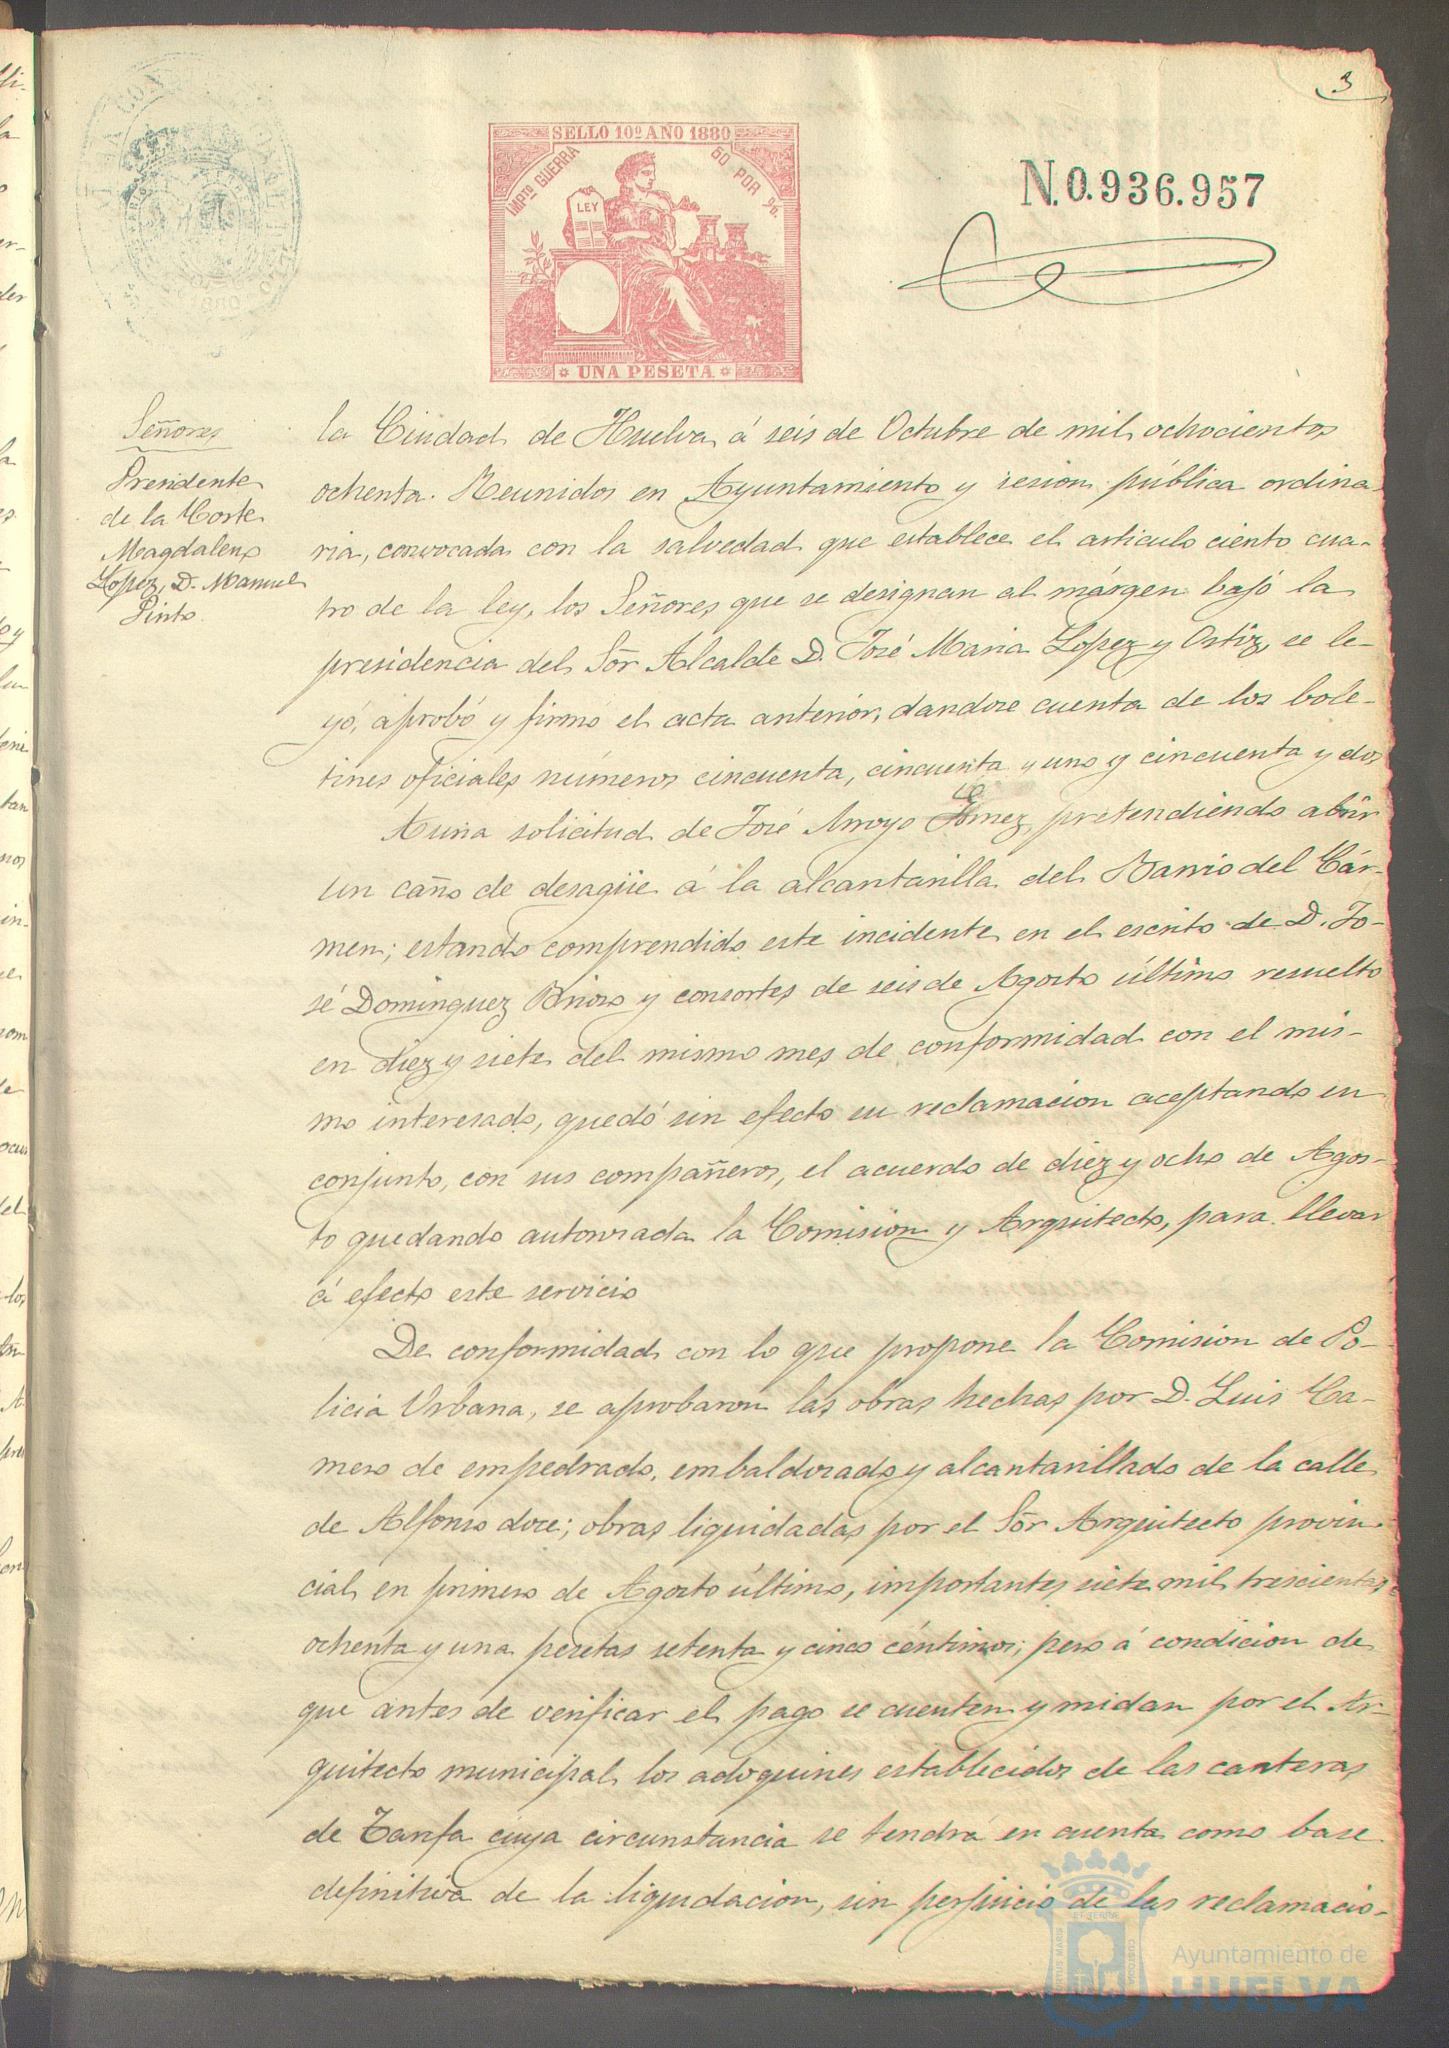 3
SELLO 10º AÑO 1880
IMPTO GUERRA
50 POR %
LEY
UNA PESETA
N.0.936.957
Señores
Presidente
de la Corte
Magdalena
Lopez, D. Manuel
Pinto.
la Ciudad de Huelva á seis de Octubre de mil ochocientos
ochenta. Reunidos en Ayuntamiento y sesion pública ordina-
ria, convocada con la salvedad que establece el articulo ciento cua-
tro de la ley, los Señores que se designan al márgen bajó la
presidencia del Sõr Alcalde D. José Maria Lopez y Ortiz, se le-
yó, aprobó y firmo el acta anterior, dandose cuenta de los bole-
tines oficiales números cincuenta, cincuenta y uno y cincuenta y dos
A una solicitud de José Arroyo pretendiendo abrir
un caño de desagüe á la alcantarilla del Barrio del Cár-
men; estando comprendido este incidente en el escrito de D. Jo-
sé Dominguez Brioso y consortes de seis de Agosto último resuelto
en diez y siete del mismo mes de conformidad con el mis-
mo interesado, quedó sin efecto su reclamacion aceptando en
conjunto, con sus compañeros, el acuerdo de diez y ocho de Agos-
to quedando autorizada la Comision y Arquitecto, para llevar
á efecto este servicio
De conformidad con lo que propone la Comision de Po-
licia Urbana, se aprobaron las obras hechas por D. Luis Ca-
mero de empedrado, embaldosado y alcantarillado de la calle
de Alfonso doce; obras liquidadas por el Sõr Arquitecto provin-
cial en primero de Agosto último, importantes siete mil trescientas
ochenta y una pesetas setenta y cinco céntimos; pero á condicion de
que antes de verificar el pago se cuenten y midan por el Ar-
quitecto municipal los adoquines establecidos de las canteras
de Tarifa cuya circunstancia se tendrá en cuenta como base
definitiva de la liquidacion, sin perjuicio de las reclamacio-
Ayuntamiento de
HUELVA